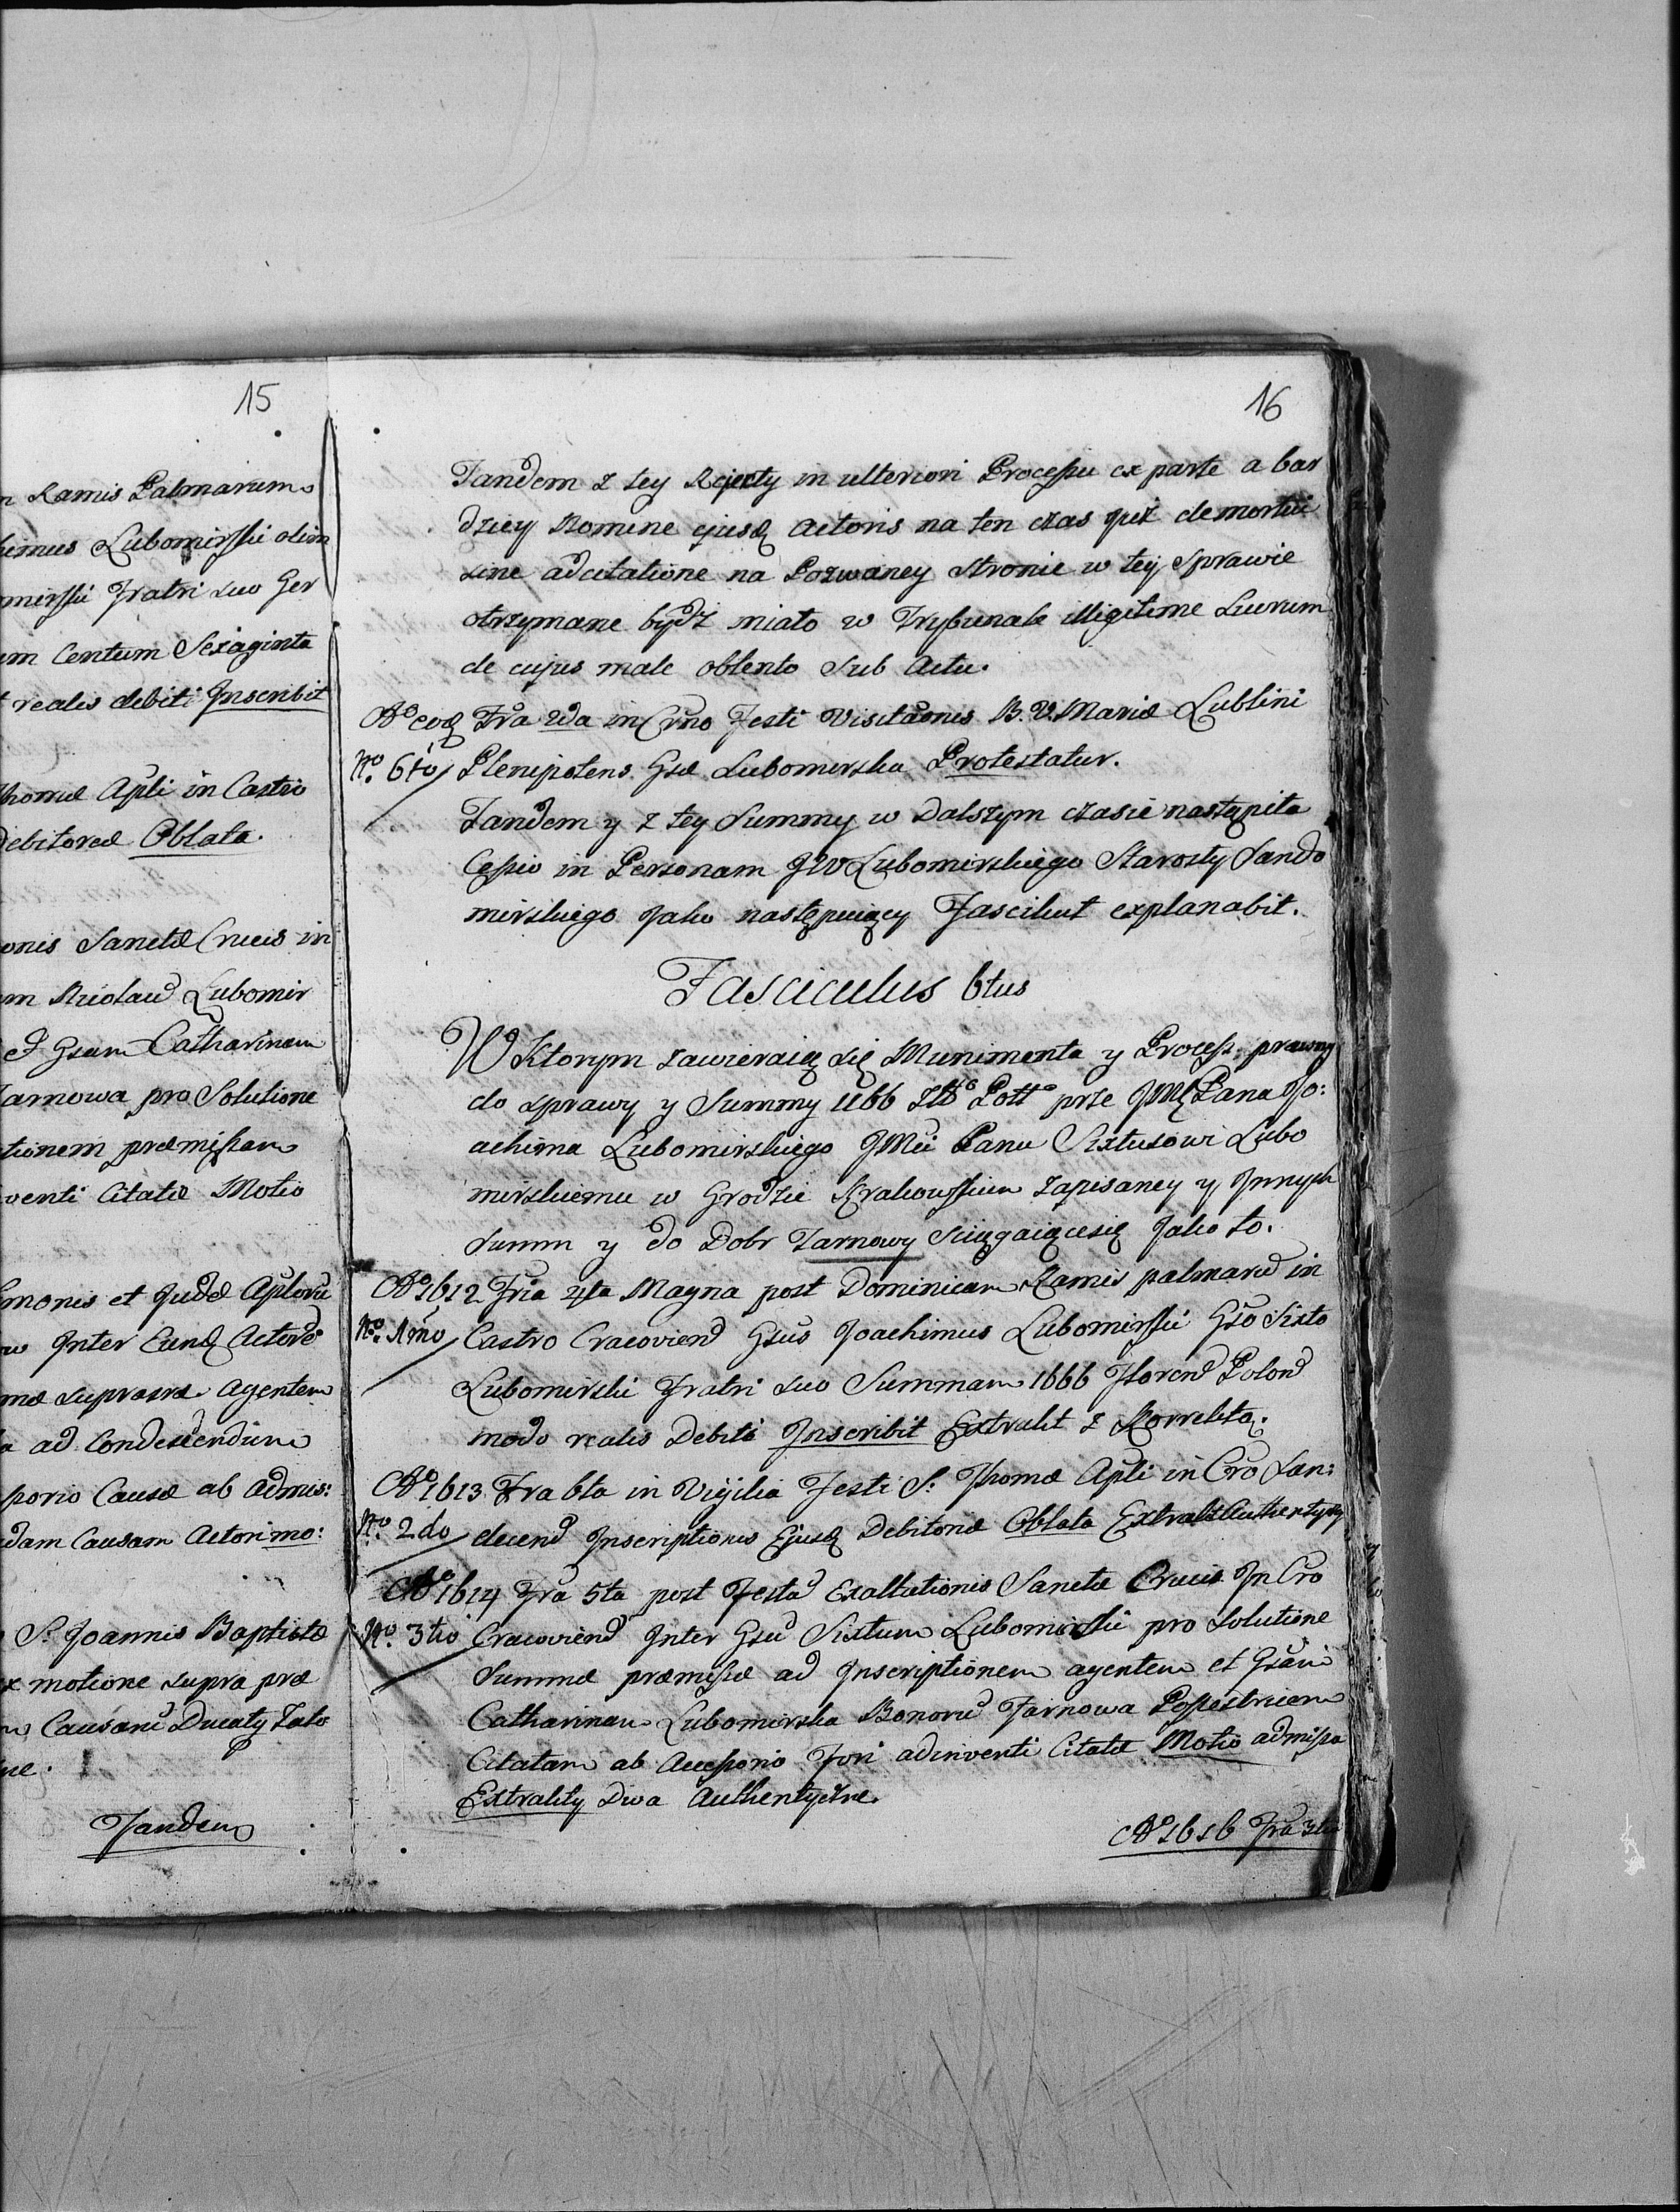 15
n Ramis Palmarum
himus Lubomirski olim
mirski Fratri suo Ger
um Centum Sexaginta
reales debiti Inscribit
Thomæ Apli in Castro
Debitoreæ Oblata.
onis Sanctæ Crucis in
um Lubomir
et Gsam Catharinam
Tarnowa pro Solutione
tionem præmissam
venti Citatæ Motio
monis et Judæ Aplorū
Inter Eund Actore
mæ suprascæ agentem
a ad Condescendum
porio Causæ ab admis:
dam Causam Actori mo:
S. Joannis Baptistæ
ex motione supra præ
m Causam Ducaty
ne.
Tandem
16
Tandem z tey Rejecty in ulteriori Processu ex parte a bar
dziey Nomine ejusd Actoris na ten czas już demortui
sine adcitatione na Pozwaney Stronie w tey Sprawie
otrzymane bydź miało w Trybunale illigitime Lucrum
de cujus male oblento sub Actu.
Aº eod Fra 2da in Crno Festi Visitaonis B. V. Mariæ Lublini
Nº. 6to Plenipotens Gsæ Lubomirska Protestatur.
Tandem y z tey Summy w Dalszym czasie nastąpiła
Cessio in Personam JW Lubomirskiego Starosty Sando
mirskiego Jako następuiący Fascikuł explanabit.
Fasciculus 6tus
W Ktorym zawieraią się Munimenta y Process prawny
do sprawy y Summy 1666 Złº Pollº prze JMć Pana Jo:
achima Lubomirskiego JMci Panu Sixtusowi Lubo
mirskiemu w Grodzie Krakowskim zapisaney y Innych
Summ y do Dobr Tarnowy sciągaiącesię Jako to.
Aº 1612 Fria 4ta Magna post Dominicam Ramis palmarū in
Nº. 1mo Castro Cracoviend Gsus Joachimus Lubomirski Gso Sixto
Lubomirski Fratri suo Summam 1666 Florend Polond
modo realis Debiti Inscribit Extrakt z Korrektą.
Aº 1613 Fra 6ta in Vigilia Festi S. Thomæ Apli in Cro San:
Nº 2do decend Inscriptionis Ejusd Debitoriæ Oblata Extrakt Authentyczny
Aº 1614 Fra 5ta post Festū Exaltationis Sanctæ Crucis In Cro
Nº. 3tio Cracoviend Inter Gsū Sixtum Lubomirski pro Solutione
Summæ præmissæ ad Inscriptionem agentem et Gsam
Catharinam Lubomirska Bonorū Tarnowa Possestricem
Citatam ab Accessorio Fori adinventi Citatæ Motio admissa
Extrakty Dwa Authentyczne.
Aº 1616 Fra 3tia